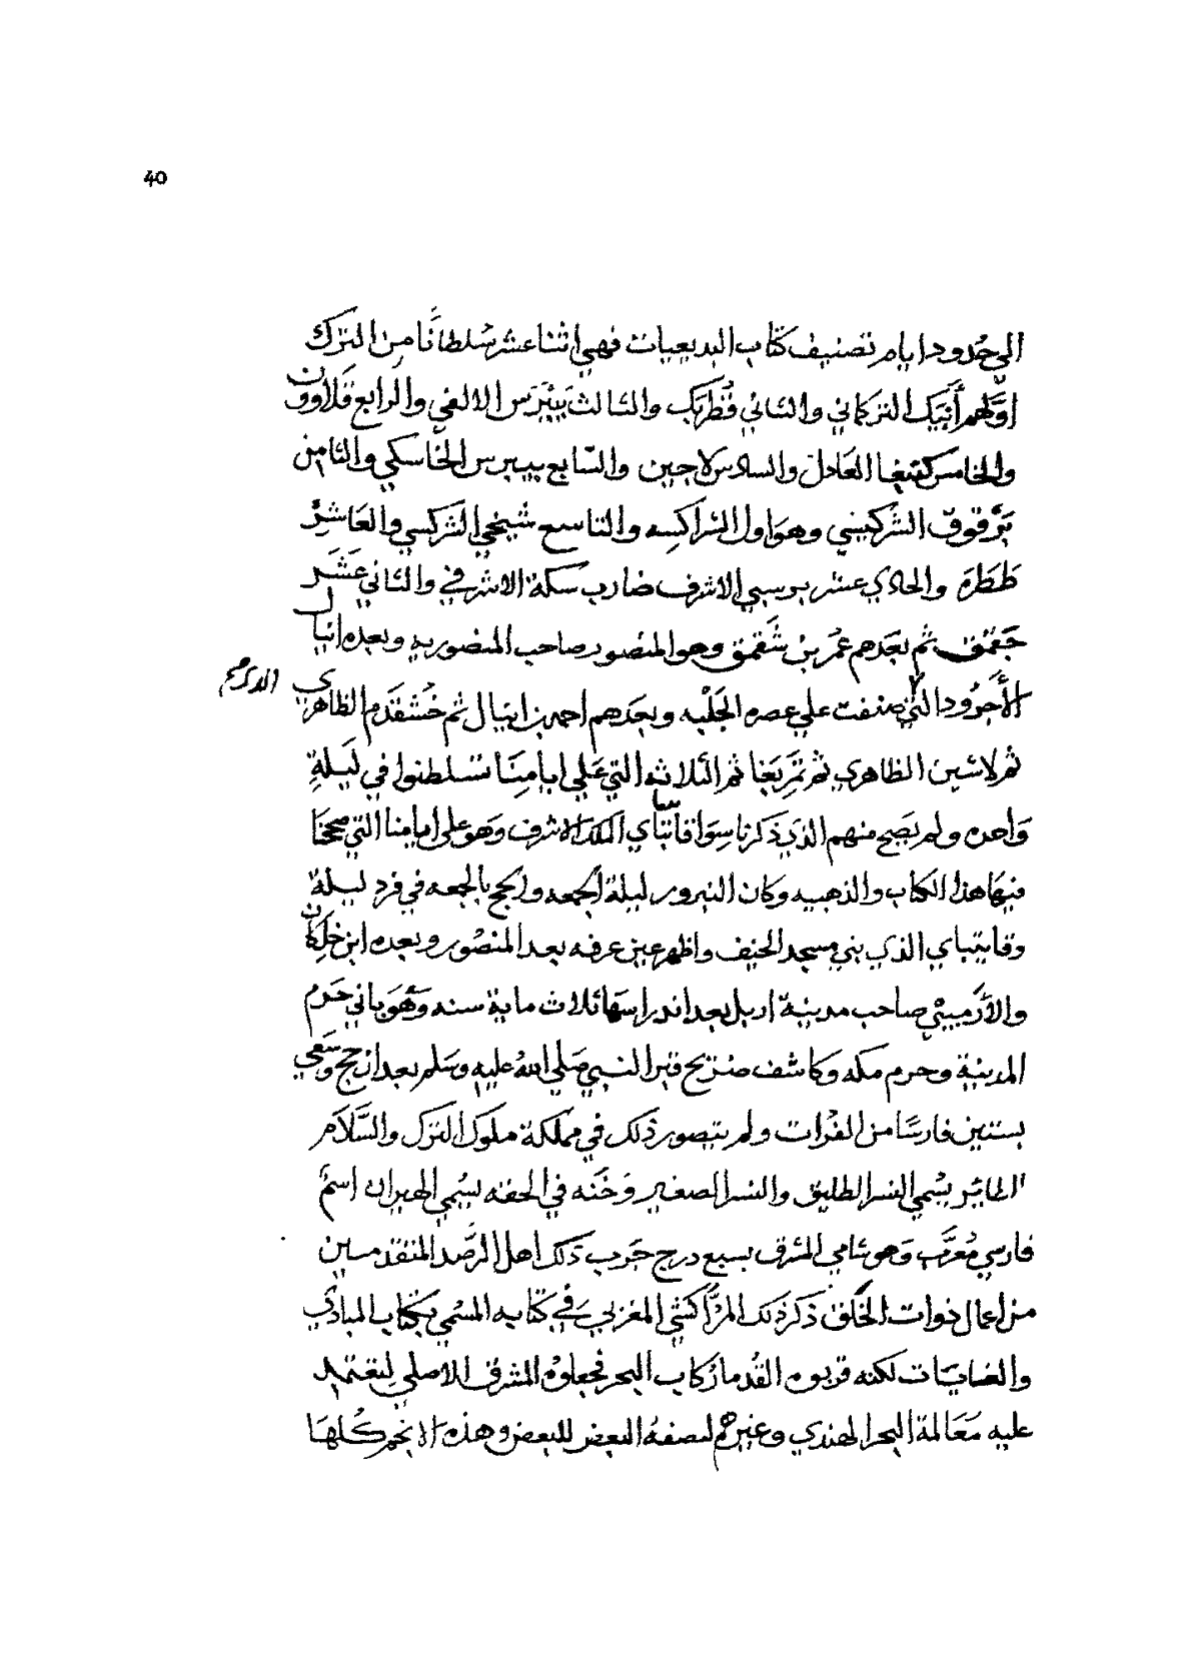 40
الي حدود ايام تصنيف كتاب البديعيات فهي اثنا عشر سلطانًا من الترك
اوّلهم أَيْبَك التركماني والثاني قُطُربَك والثالث بَيْبَرَس الالفي والرابع قَلاوون
والخامس كتبغا العَادل والسادس لاجين والسّابع بيبرس الخَاسكي والثامن
بَرْقوق الشركيسي وهوَ اول الشراكسه والتاسع شيخي الشركسي والعَاشر
طَطَرَة والحادي عشر برسبي الاشرف ضارب سكة الاشرفي والثاني عَشَر
جَقمَق ثم بعَدهم عمَر بن شَقمق وهو المنصور صاحب المنصوريه وبعده انيال
الأَجرُود التي صنفت علي عصره الجَلْبه وبعَدهم احمد بن اينال ثم خُشقَدَم الظاهري
الدكرم
ثم لاشين الظاهري ثم تَمَربَغا ثم الثلاثه التي عَلي ايامِنَا تسلطنوا في لَيلةِ
وَاحده ولم يَصِح منهم الذي ذكرنا سِوَا قايتباي الملك الاشرف وَهوَ علي ايامنا التي صححنا
فيهَا هذا الكتاب والذهبيه وكان النيروز ليلة الجمعه والحج بالجمعه في فرد ليلة
وقايتباي الذي بني مسجد الخيف واظهر عين عرفه بعد المنصور وبعده ابن خلكان
والأَرمِيني صاحب مدينة اربل بعد اندراسهَا ثلاث ماية سنه وَهوَ باني حَرم
المدينة وحرم مكه وكاشف ضريح قبر النبي صَلي الله عليه وسَلم بعد ان حج وسَعي
بستين فارسًا من الفرات ولم يتصور ذلك في مملكة ملوك الترك والسَّلاَم
الطائِر يسْمي النسر الطليق والنسر الصغير وَخَنَه في الحقه يسُمي الهيران اسمٌ
فارسي مُعرَّب وَهو شامي المشرق بسبع درج حَرب ذكَك اهل الرصَد المتقدمين
من اعمال ذوات الخَلق ذكَر ذلك المرّاكشي المغزلي في كتابه المسْمي بكتاب المبادي
والغايَات لكنه قربوه القُدما ركاب البحر فجعلوهُ المشرق الاصلي ليَعتمد
عليه مَعَالمة البحر الهندي وغيرهم لنصفهُ البعض للبعض وهذه الانجم كُلهَا